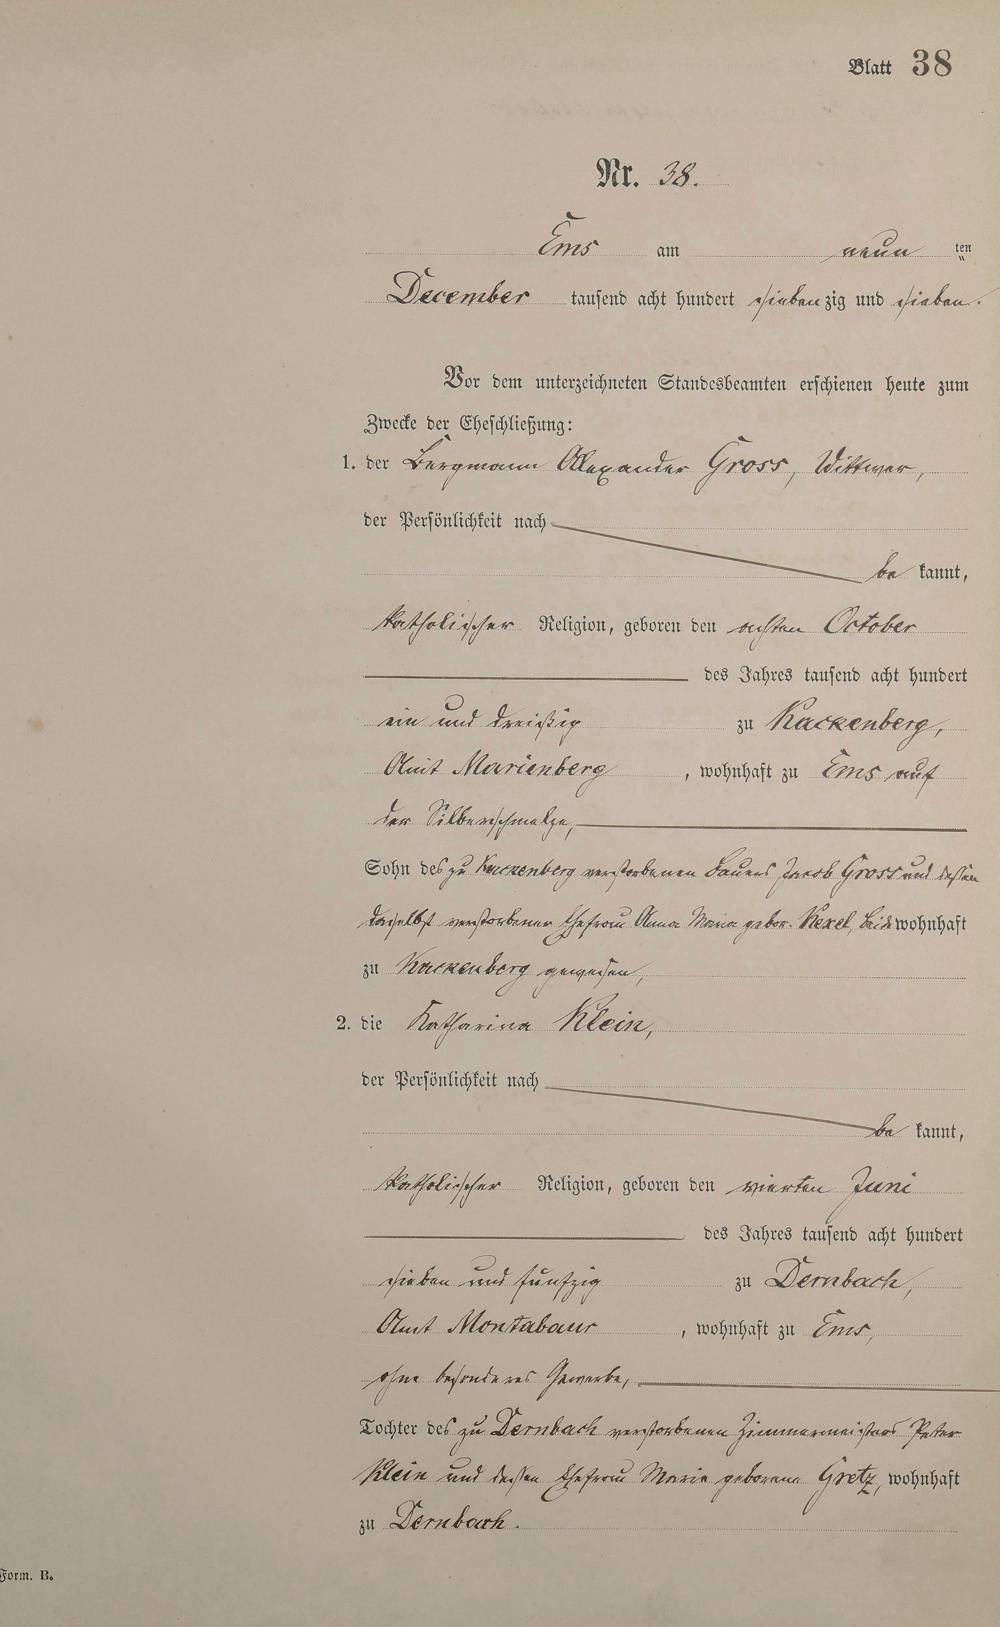 Blatt 38
Nr. 38.
Ems am neun ten
December tausend acht hundert siebenzig und sieben.
Vor dem unterzeichneten Standesbeamten erschienen heute zum
Zwecke der Eheschließung:
1. der Bergmann Alexander Gross, Wittwer,
der Persönlichkeit nach
be kannt,
katholischer Religion, geboren den achten October
des Jahres tausend acht hundert
ein und dreißig zu Kackenberg,
Amt Marienberg, wohnhaft zu Ems auf
der Silberschmelze,
Sohn des zu Kackenberg verstorbenen Bauers Jacob Gross und dessen
daselbst verstorbener Ehefrau Anna Maria gebor. Kexel, beide wohnhaft
zu Kackenberg gewesen,
2. die Katharina Klein,
der Persönlichkeit nach
be kannt,
katholischer Religion, geboren den vierten Juni
des Jahres tausend acht hundert
sieben und funfzig zu Dernbach,
Amt Montabaur, wohnhaft zu Ems,
ohne besonderes Gewerbe,
Tochter des zu Dernbach verstorbenen Zimmermeisters Peter
Klein und dessen Ehefrau Maria geborene Gretz, wohnhaft
zu Dernbach.
Form. B.